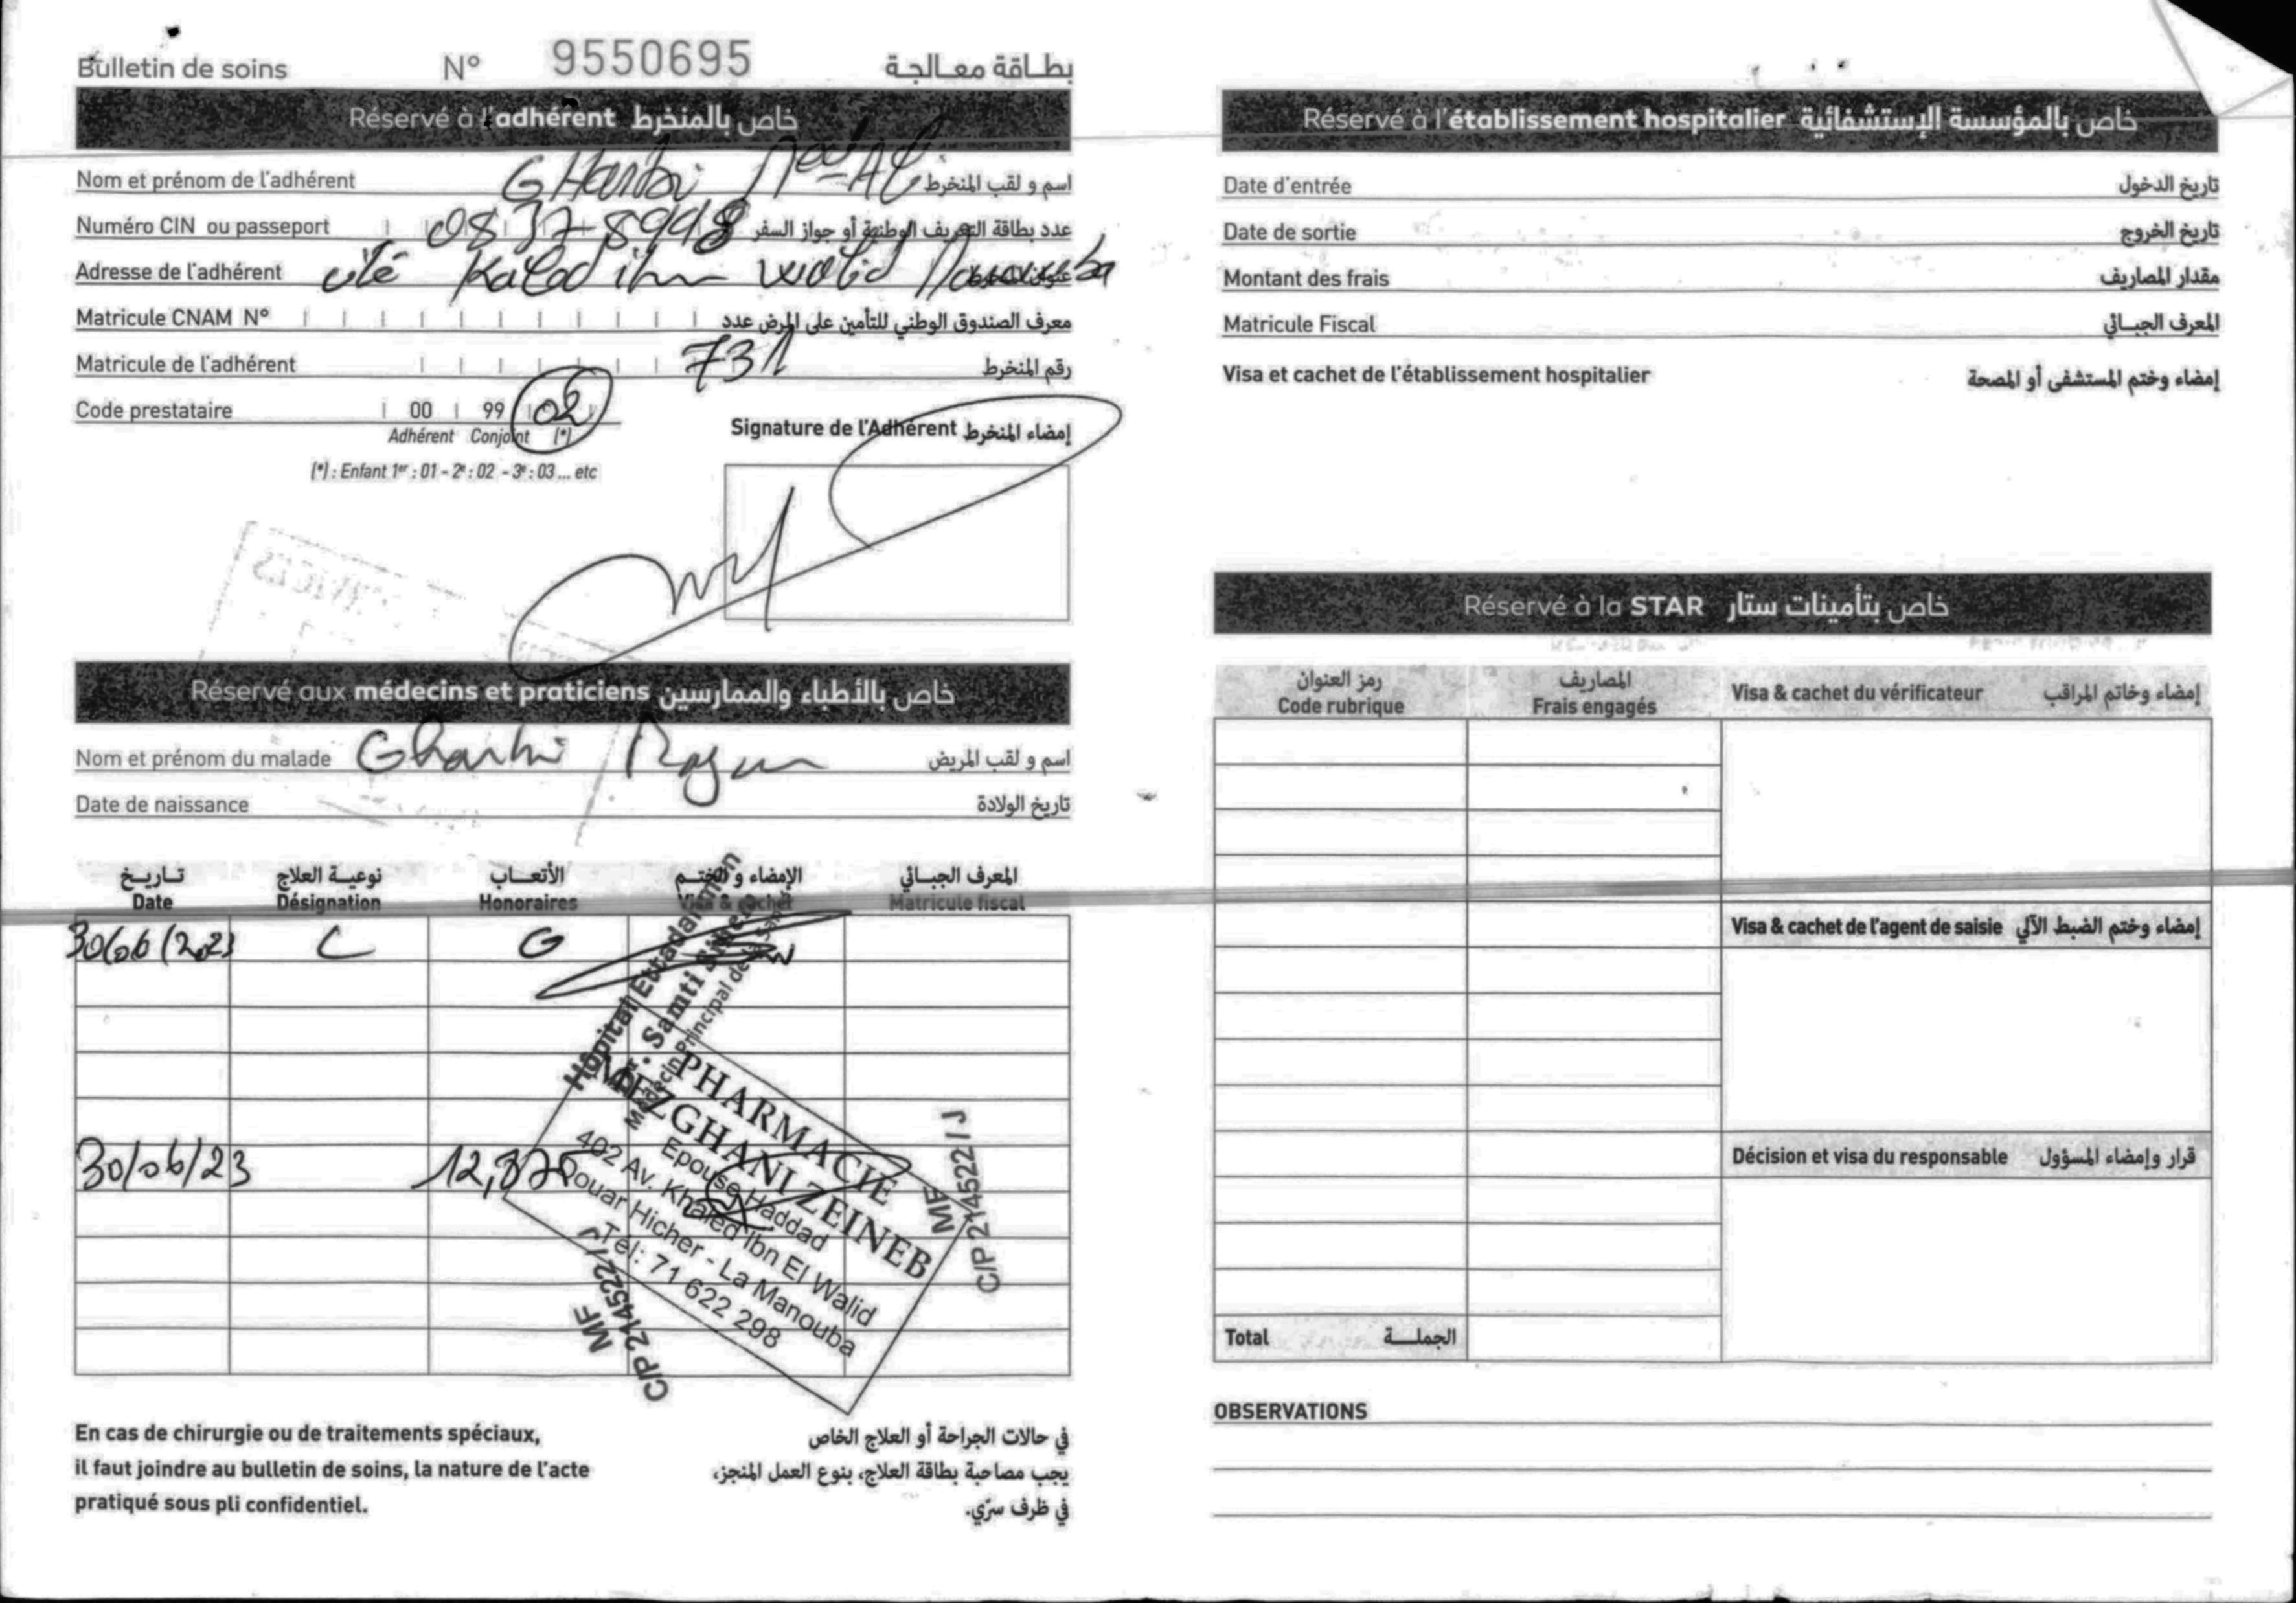 Bulletin de soins N° 9550695 بطاقة معالجة
Réservé à l'adhérent خاص بالمنخرط
Nom et prénom de l'adhérent GHarbi Med Ali اسم و لقب المنخرط
Numéro CIN ou passeport 08378998 عدد بطاقة التعريف الوطنية أو جواز السفر
Adresse de l'adhérent cité Kaled ibn walid Manouba
Matricule CNAM N° معرف الصندوق الوطني للتأمين على المرض عدد
Matricule de l'adhérent 731 رقم المنخرط
Code prestataire 00 99 02
Adhérent Conjoint (*)
(*) : Enfant 1er : 01 - 2e : 02 - 3e : 03 ... etc
Signature de l'Adhérent إمضاء المنخرط
Réservé aux médecins et praticiens خاص بالأطباء والممارسين
Nom et prénom du malade Gharbi اسم و لقب المريض
Date de naissance تاريخ الولادة
تاريخ نوعية العلاج الأتعاب الإمضاء و الختم المعرف الجبائي
Date Désignation Honoraires Visa & cachet Matricule fiscal
30/06/2023 C G
Hôpital Ettadhamen
Dr. Samti
Médecin Principal de la Santé
30/06/23 12,875
PHARMACIE
MEZGHANI ZEINEB
Epouse Haddad
402 Av. Khaled Ibn El Walid
Douar Hicher - La Manouba
Tél: 71 622 298
MF
C/P 214522/J
MF
C/P 214522/J
En cas de chirurgie ou de traitements spéciaux, في حالات الجراحة أو العلاج الخاص
il faut joindre au bulletin de soins, la nature de l'acte يجب مصاحبة بطاقة العلاج، بنوع العمل المنجز،
pratiqué sous pli confidentiel. في ظرف سرّي.
Réservé à l'établissement hospitalier خاص بالمؤسسة الإستشفائية
Date d'entrée تاريخ الدخول
Date de sortie تاريخ الخروج
Montant des frais مقدار المصاريف
Matricule Fiscal المعرف الجبائي
Visa et cachet de l'établissement hospitalier إمضاء وختم المستشفى أو المصحة
Réservé à la STAR خاص بتأمينات ستار
رمز العنوان المصاريف
Code rubrique Frais engagés Visa & cachet du vérificateur إمضاء وخاتم المراقب
Visa & cachet de l'agent de saisie إمضاء وختم الضبط الآلي
Décision et visa du responsable قرار وإمضاء المسؤول
Total الجملة
OBSERVATIONS